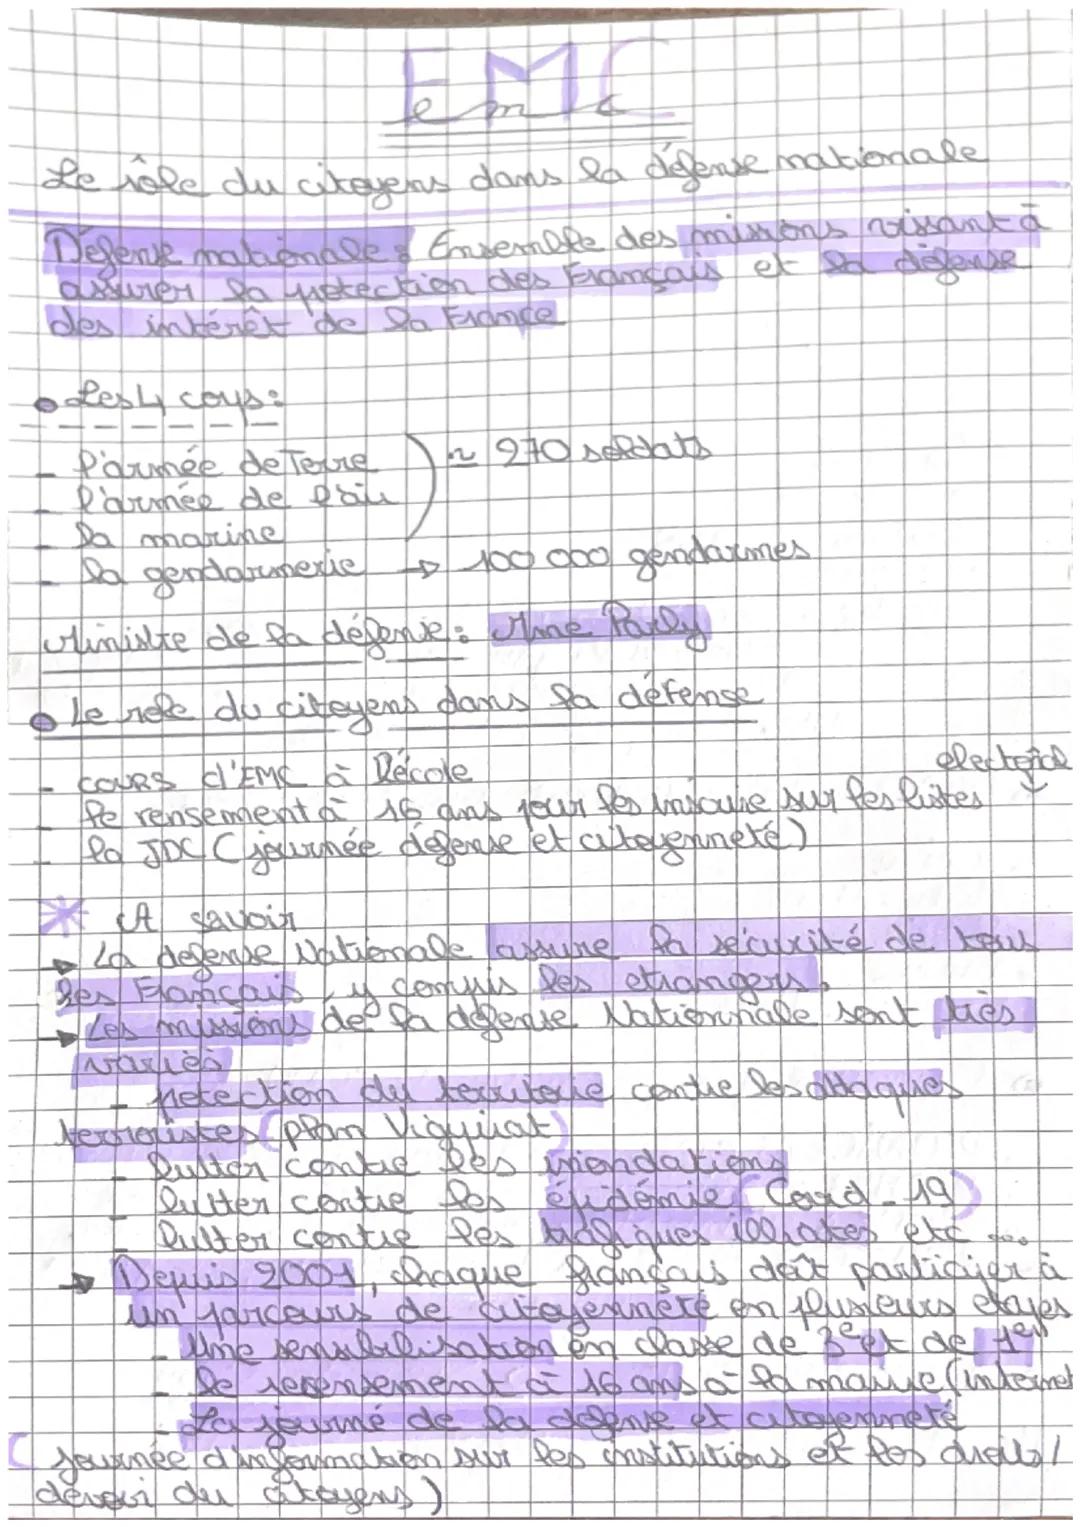 EMC
emc
Le rôle du citoyens dans la défense nationale
Défense nationale : Ensemble des missions vissant à
assurer la protection des Français et la défense
des intérêt de la France
Les 4 corps :
- l'armée de Terre
~ 270 soldats
- l'armée de l'air
- la marine
- la gendarmerie → 100 000 gendarmes
Ministre de la défense : Mme Parly
Le role du citoyens dans la défense
- cours d'EMC à l'école
electoral
- le rensement à 16 ans pour les inscrire sur les listes
- la JDC (journée défense et citoyenneté)
A savoir
→ La defense Nationale assure la sécurité de tous
les Français, y compris les etrangers.
→ Les missions de la défense Nationnale sont très
variés
- protection du territoire contre les attaques
terroristes (plan Vigipirat)
- lutter contre les inondations
- lutter contre les épidémie (Covid-19)
- lutter contre les trafiques illicites etc ...
→ Depuis 2001, chaque français doit participer à
un parcours de citoyenneté en plusieurs etapes
- Une sensibilisation en classe de 3e et de 1er
- le recensement à 16 ans à la mairie (internet
- La journé de la défense et citoyenneté
(journée d'information sur les institutions et les droits /
devoir du citoyens)